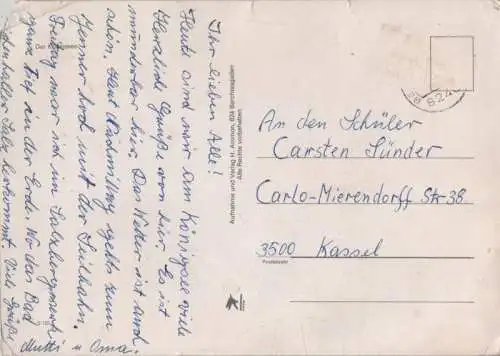 Ihr lieben Alle!
Heute sind wir am Königsee viele
Herzliche Grüße von hier. Es ist
wunderbar hier. Das Wetter ist auch
schön. Heut Nachmittag gehts zum
Jenner hoch mit der Seilbahn.
Freitag war ich im Salzbergwerk
ganz tief in der Erde. Wo das Bad
Reichenhaller Salz herkommt. Viele Grüße
Mutti u Oma.
Aufnahme und Verlag H. Ammon, 824 Berchtesgaden
Alle Rechte vorbehalten
824
An den Schüler
Carsten Sünder
Carlo-Mierendorff Str 38
3500 Kassel
Postleitzahl